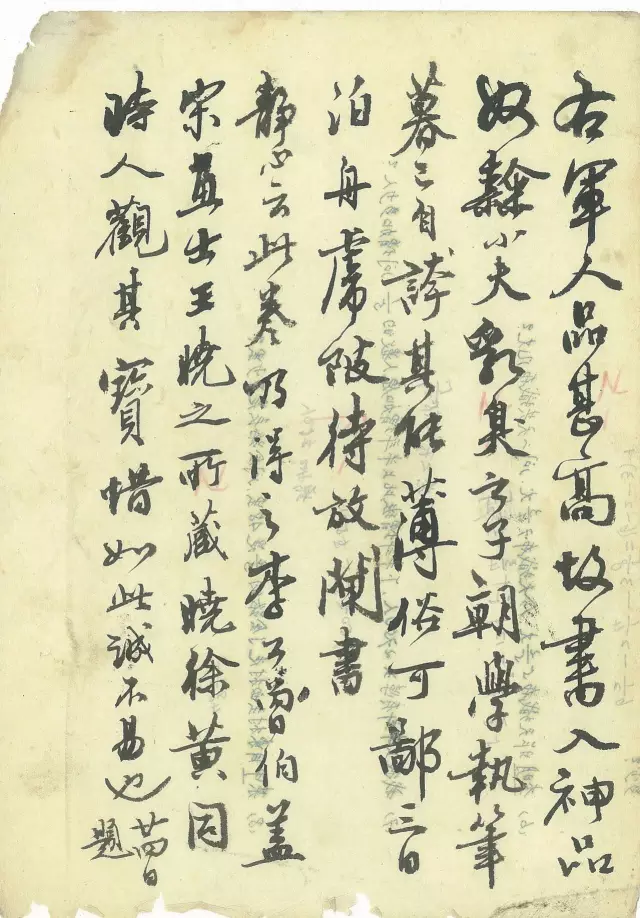 右军人品甚高故书入神品
奴隸小夫乳臭之子朝學執筆
暮已自誇其能薄俗可鄙三日
泊舟虎陂待放閘書
靜心云此卷乃得之李公曾伯蓋
宋畫士王曉之所藏曉徐黃同
時人觀其寶惜如此誠不易也
廿四日
題